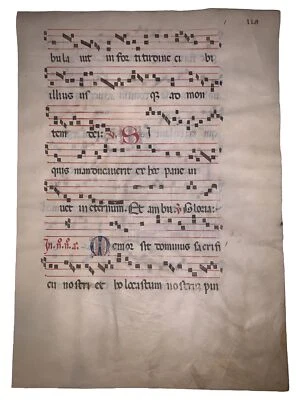 bula uit in for ti tudine ci bi
illius us q; ad mon
tem dei. S i
quis manducauerit ex hoc pane ui
uet in eternum. Et ambu Gloria:
Memor sit dominus sacrifi
cii nostri et ho locastum nostrum pin